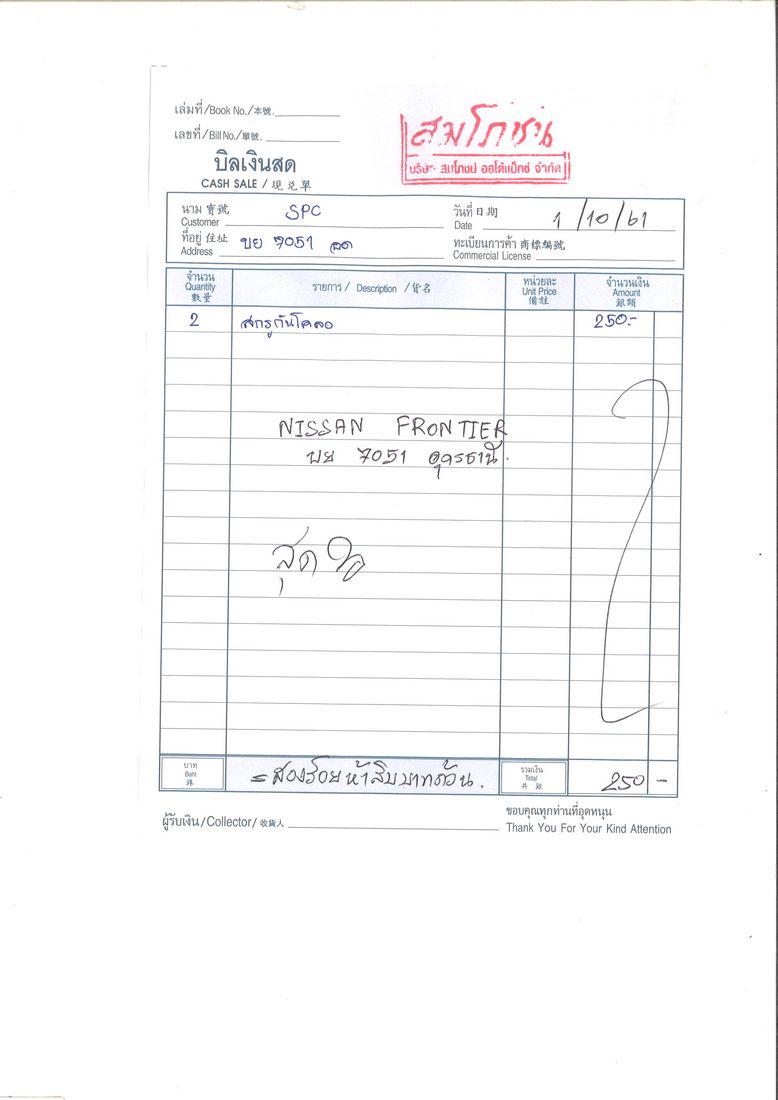 เล่มที่/Book No./本號.
เลขที่/Bill No./單號.
บิลเงินสด
CASH SALE / 現兌單
สมโภชน์
บริษัท สมโภชน์ ออโต้แม็กซ์ จำกัด
นาม 寳號 Customer SPC
วันที่ 日期 Date 1/10/61
ที่อยู่ 住址 Address บย 7051 อด
ทะเบียนการค้า 商標編號 Commercial License
จำนวน Quantity 數量 รายการ / Description / 貨名 หน่วยละ Unit Price 備註 จำนวนเงิน Amount 銀額
2 สกรูกันโคลง 250.-
NISSAN FRONTIER
บย 7051 อุดรธานี.
สุดใจ
บาท Baht 銖 = สองร้อยห้าสิบบาทถ้วน. รวมเงิน Total 共銀 250 -
ผู้รับเงิน/Collector/收貨人
ขอบคุณทุกท่านที่อุดหนุน
Thank You For Your Kind Attention